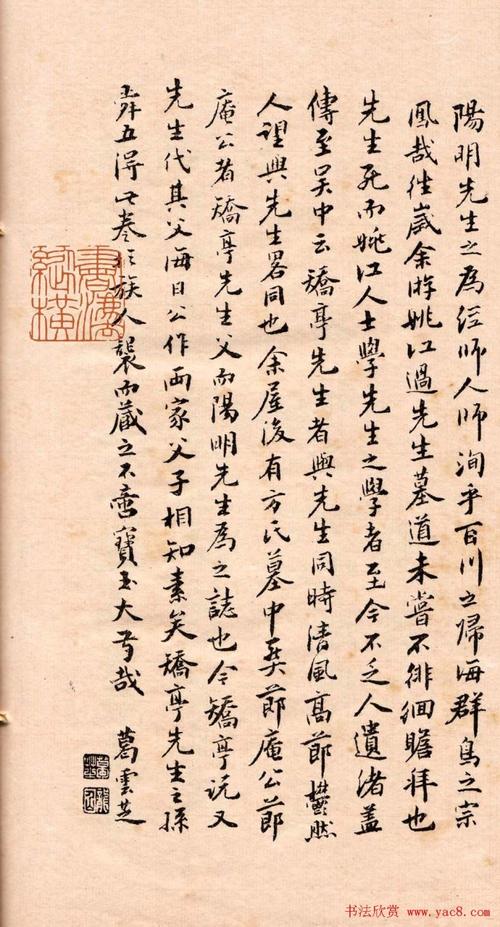 陽明先生之為經師人師洵乎百川之歸海群鳥之宗
鳳哉往歲余游姚江過先生墓道未嘗不徘徊瞻拜也
先生死而姚江人士學先生之學者至今不乏人遺渚蓋
傳至吴中云矯亭先生者與先生同時清風高節鬱然
人望與先生畧同也余屋後有方氏墓中葬節庵公節
庵公者矯亭先生父而陽明先生為之誌也今矯亭説又
先生代其父海日公作兩家父子相知素矣矯亭先生之孫
舜五得此卷於族人襲而藏之不啻寶玉大弓哉
葛雲芝
書法欣賞 www.yac8.com